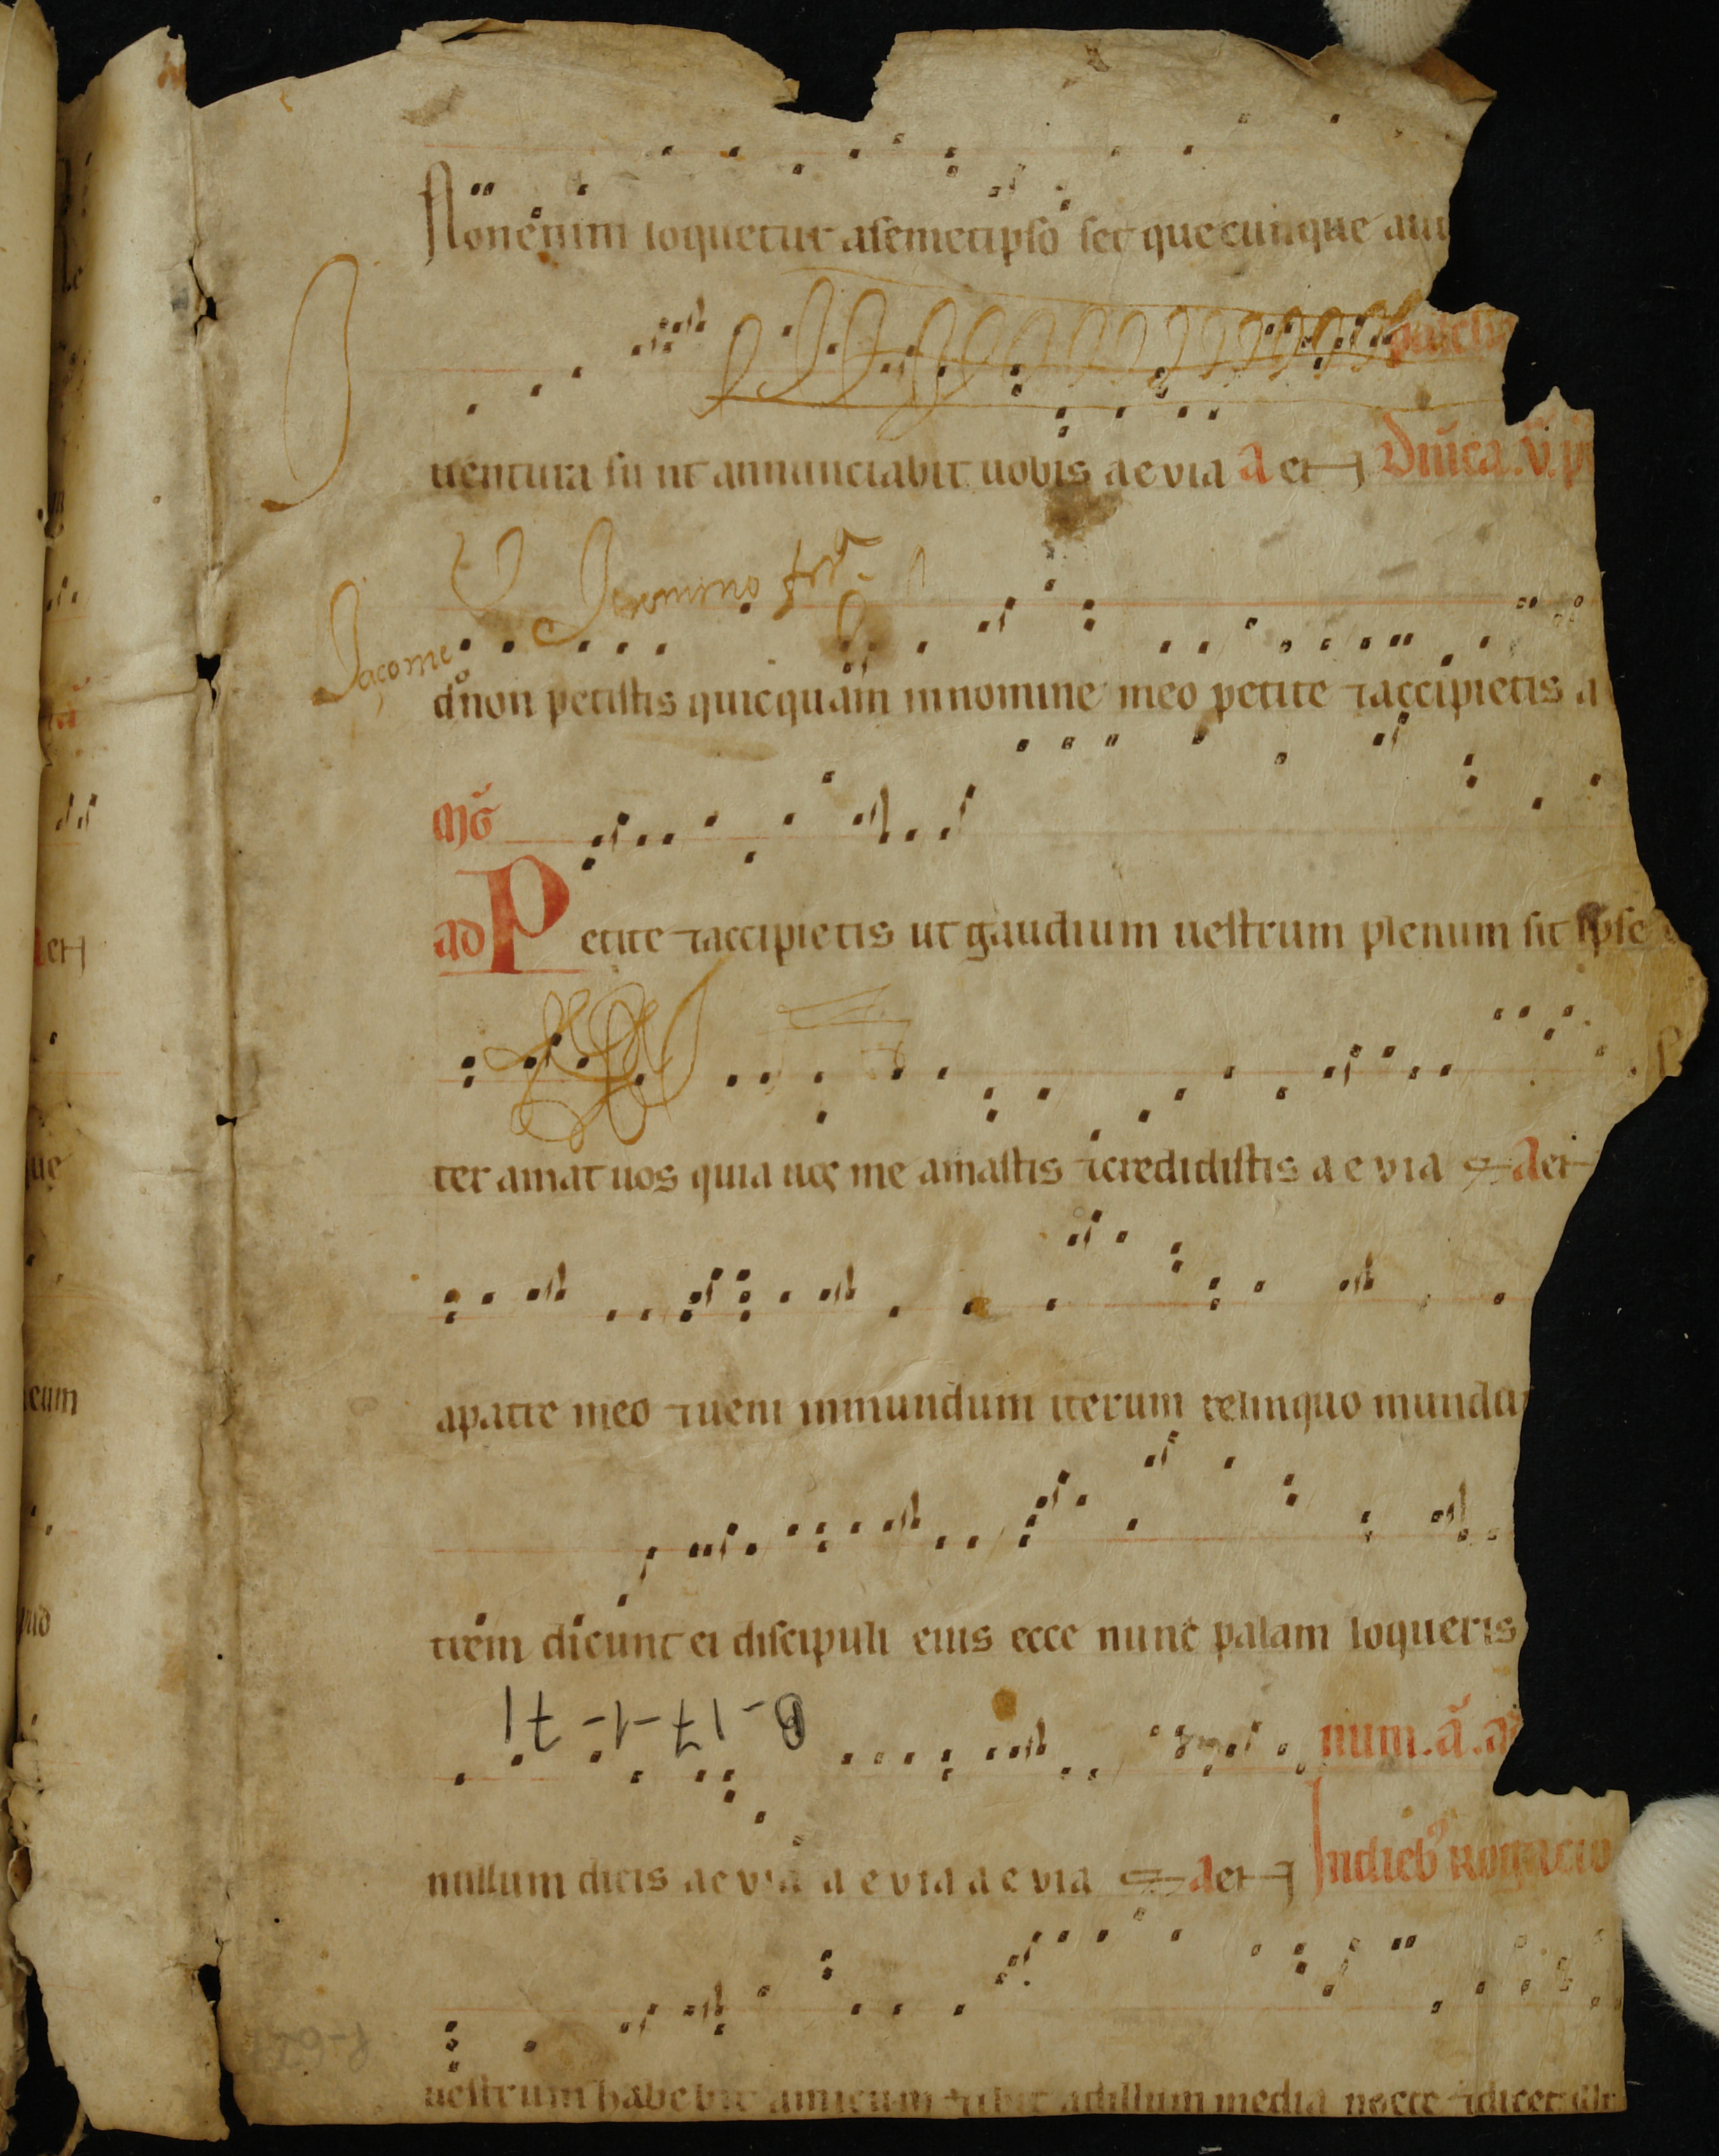 Non enim loquetur a semetipso set quecumque au
uentura sunt annunciabit uobis aevia a et
Dn̄ica .v. p
Jacome Jeronimo
d̄ non petistis quicquam in nomine meo petite ⁊ accipietis a
Mḡ
ad Petite ⁊ accipietis ut gaudium uestrum plenum sit ipse
ter amat uos quia uos me amastis ⁊ credidistis a e via a et
a patre meo ⁊ ueni in mundum iterum relinquo mundu
trem dicunt ei discipuli eius ecce nunc palam loqueris
B-17-1-71
num. ā. a
nullum dicis aevia a e via a e via a et In dieb⁹ rogacio
uestrum habebit amicum ⁊ ibit ad illum media nocte ⁊ dicet illi